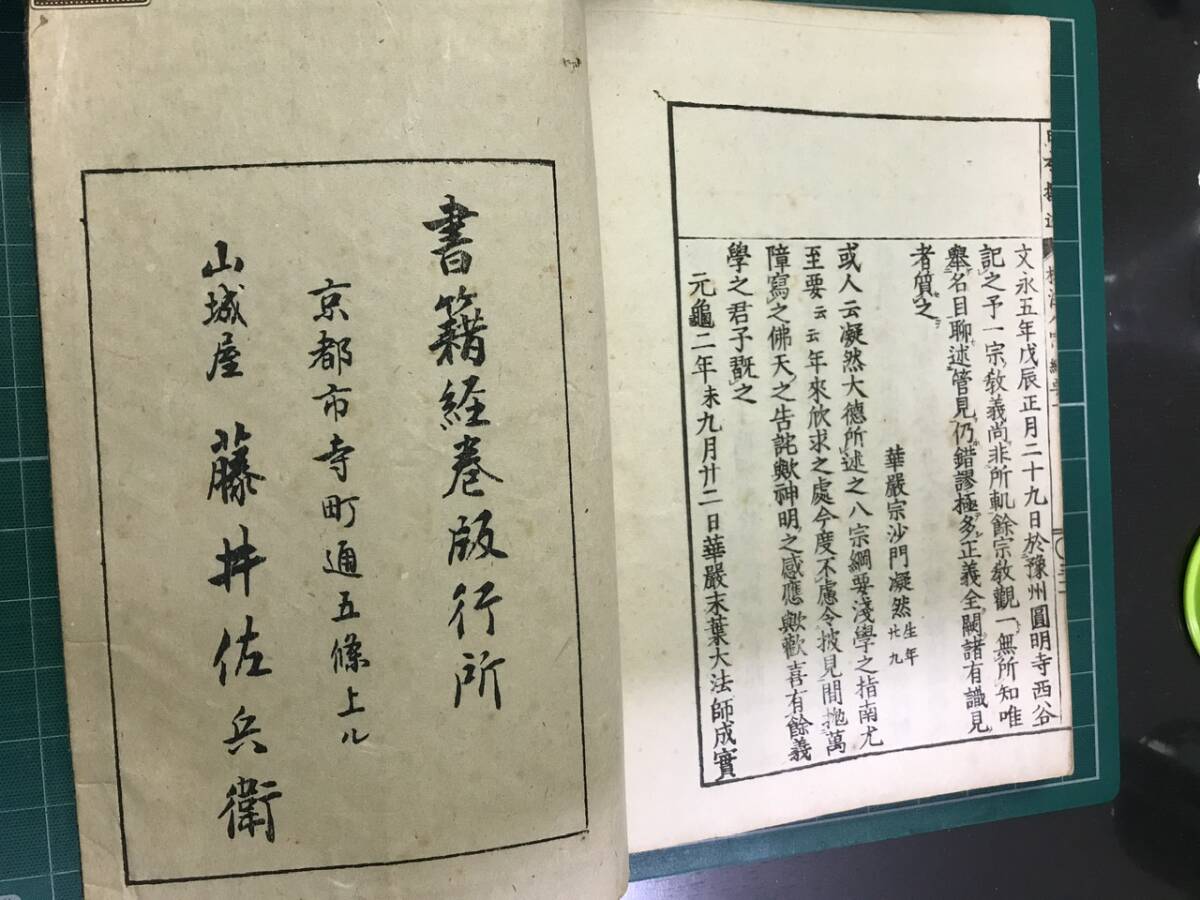 文永五年戊辰正月二十九日於豫州圓明寺西谷
記之予一宗教義尚非所軌餘宗教觀一無所知唯
擧名目聊述管見仍錯謬極多正義全闕諸有識見
者質之
華嚴宗沙門凝然生年廿九
或人云凝然大德所述之八宗綱要淺學之指南尤
至要云云年來欣求之處今度不慮令披見間抛萬
障寫之佛天之告詫歟神明之感應歟歡喜有餘義
學之君子翫之
元龜二年未九月廿二日華嚴末葉大法師成實
書籍経巻版行所
京都市寺町通五條上ル
山城屋 藤井佐兵衛